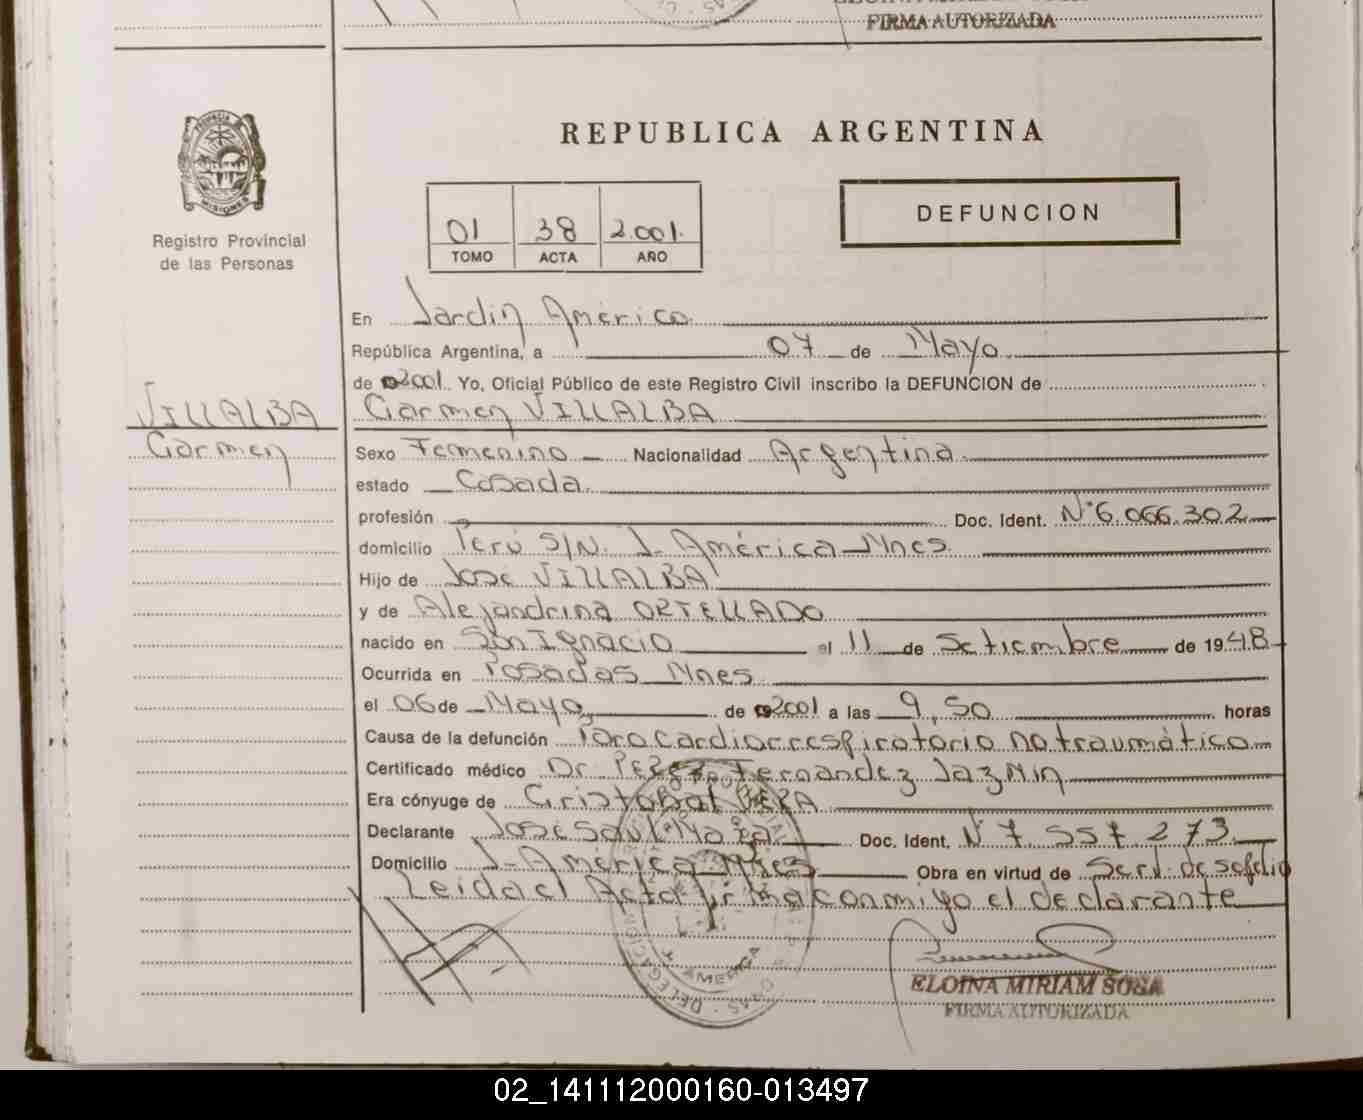 FIRMA AUTORIZADA
PROVINCIA DE
MISIONES
Registro Provincial
de las Personas
REPUBLICA ARGENTINA
01 38 2.001.
TOMO ACTA AÑO
DEFUNCION
En Jardín América
República Argentina, a 07 de Mayo
de 2001. Yo, Oficial Público de este Registro Civil inscribo la DEFUNCION de
Carmen VILLALBA
VILLALBA
Carmen
Sexo Femenino Nacionalidad Argentina
estado Casada
profesión Doc. Ident. N° 6.066.302
domicilio Perú S/N. J. América Mnes
Hijo de José VILLALBA
y de Alejandrina ORTELLADO
nacido en San Ignacio el 11 de Setiembre de 1948
Ocurrida en Posadas Mnes
el 06 de Mayo, de 2001 a las 9,50 horas
Causa de la defunción Paro cardiorrespiratorio no traumático
Certificado médico Dr Perez Fernandez Jazmin
Era cónyuge de Cristobal VERA
Declarante José Saul Doc. Ident. N° 7.557.273
Domicilio J. América Mnes Obra en virtud de Serv. de sepelio
Leida el Acta firma conmigo el declarante
J. AMERICA
DELEGACION
ELOINA MIRIAM SOSA
FIRMA AUTORIZADA
02_141112000160-013497